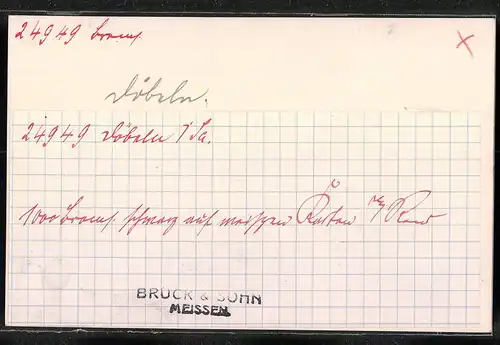 24949 Brom.
Döbeln.
24949 Döbeln i/Sa.
1000 Brom. schwarz auf weissen Karton m/ Rand
BRÜCK & SOHN
MEISSEN